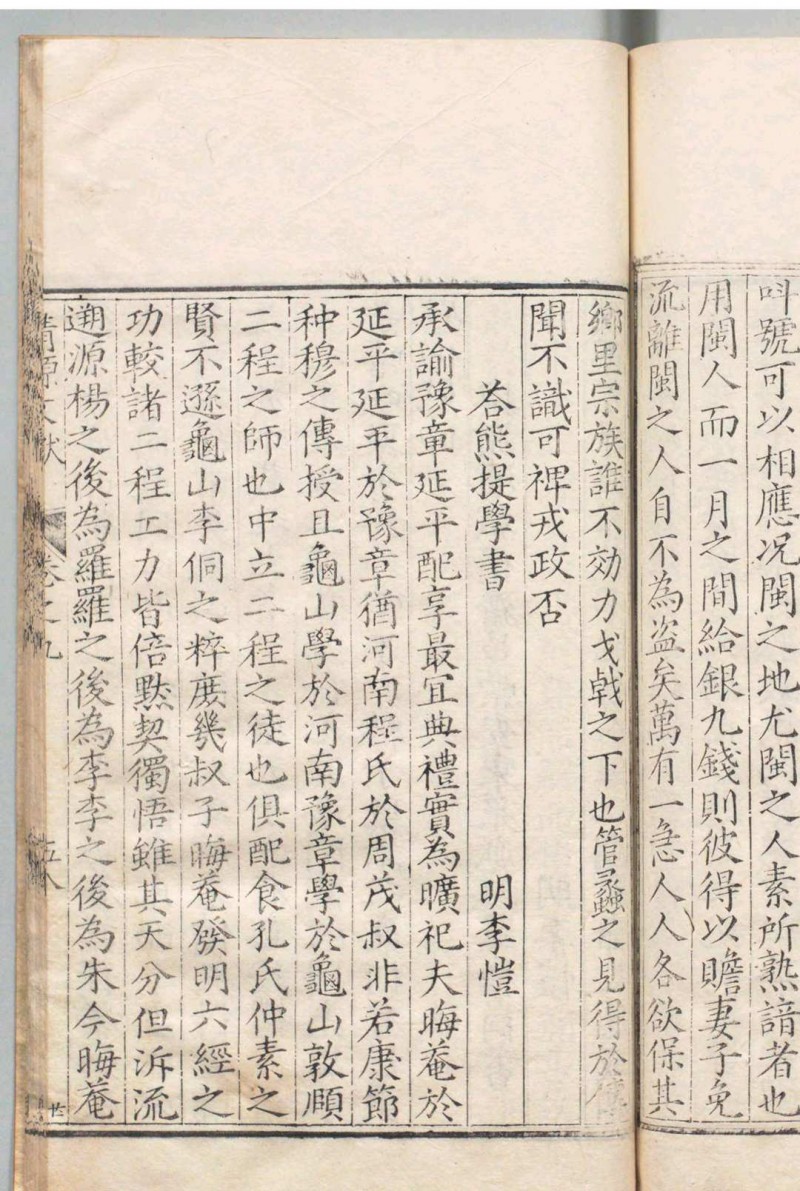 呌號可以相應况閩之地尤閩之人素所熟諳者也
用閩人而一月之間給銀九錢則彼得以贍妻子免
流離閩之人自不為盗矣萬有一急人人各欲保其
鄉里宗族誰不効力戈戟之下也管蠡之見得於
聞不識可裨戎政否
荅熊提學書 明李愷
承諭豫章延平配享最宜典禮實為曠祀夫晦菴於
延平延平於豫章猶河南程氏於周茂叔非若康節
种穆之傳授且龜山學於河南豫章學於龜山敦頤
二程之師也中立二程之徒也俱配食孔氏仲素之
賢不遜龜山李侗之粹庶幾叔子晦菴發明六經之
功較諸二程工力皆倍黙契獨悟雖其天分但泝流
遡源楊之後為羅羅之後為李李之後為朱今晦菴
清源文獻 卷之九 五八